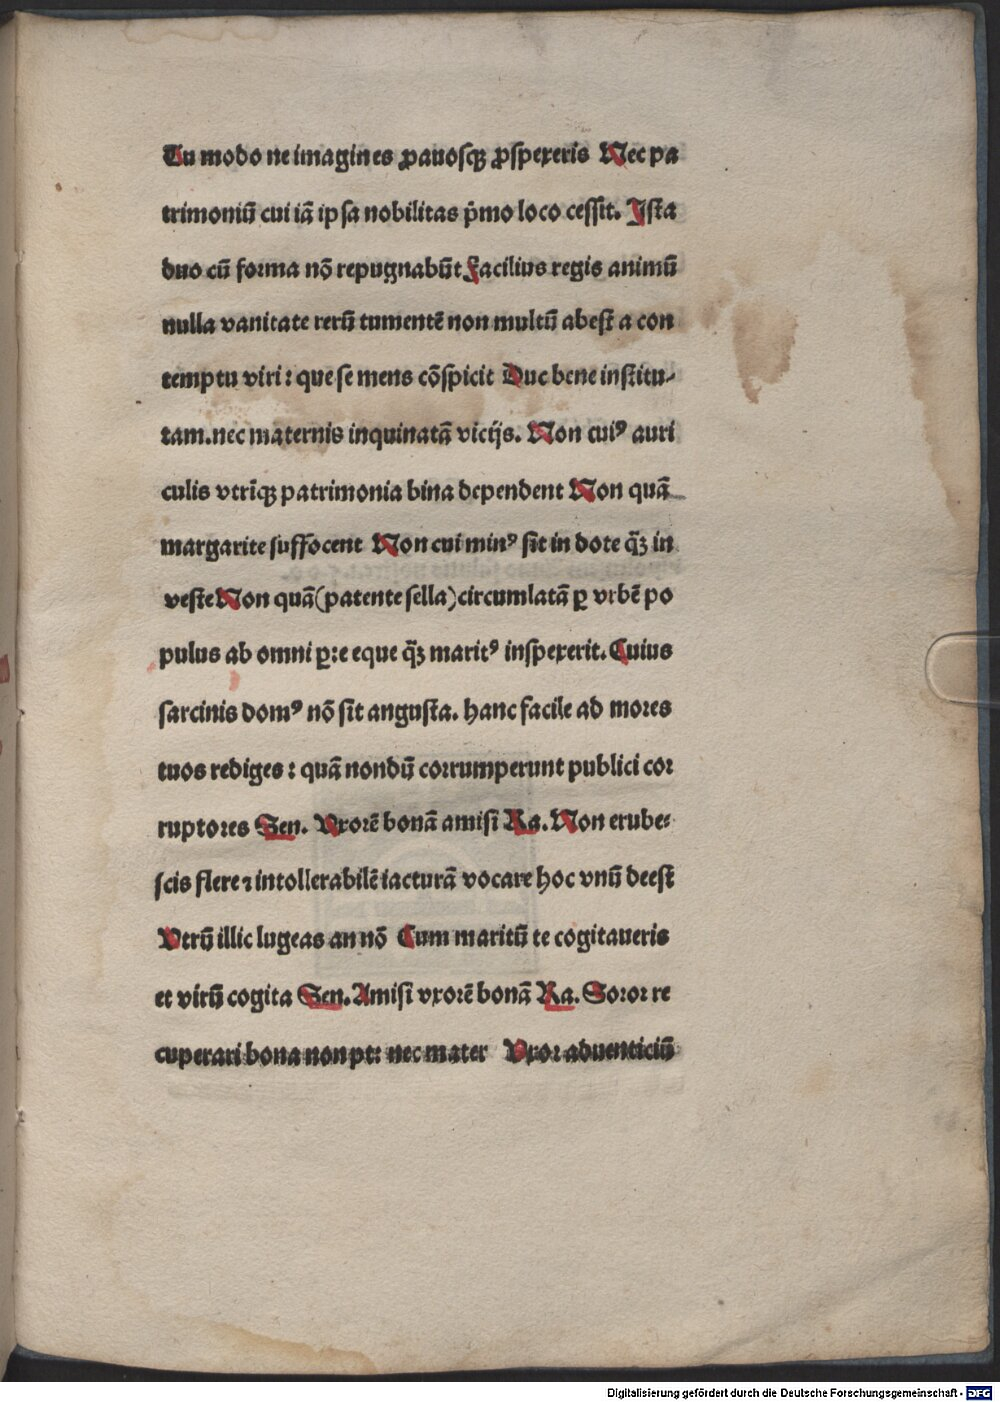 Tu modo ne imagines ꝓauosqꝫ ꝓspexeris Nec pa
trimoniū cui iā ipsa nobilitas p̄mo loco cessit. Ista
duo cū forma nō repugnabūt Facilius regis animū
nulla vanitate rerū tumentē non multū abest a con
temptu viri: que se mens cōspicit Duc bene institu-
tam. nec maternis inquinatā vicijs. Non cuiꝰ auri
culis vtrīqꝫ patrimonia bina dependent Non quā
margarite suffocent Non cui minꝰ sit in dote q̄ꝫ in
veste Non quā (patente sella) circumlatā ꝑ vrbē po
pulus ab omni ꝑte eque q̄ꝫ maritꝰ inspexerit. Cuius
sarcinis domꝰ nō sit angusta. hanc facile ad mores
tuos rediges: quā nondū corrumperunt publici cor
ruptores Sen. Vxorē bonā amisi Ra. Non erube-
scis flere ⁊ intollerabilē iacturā vocare hoc vnū deest
Vtrū illic lugeas an nō Cum maritū te cogitaueris
et virū cogita Sen. Amisi vxorē bonā Ra. Soror re
cuperari bona non pt: nec mater Vxor aduenticiū
Digitalisierung gefördert durch die Deutsche Forschungsgemeinschaft - DFG